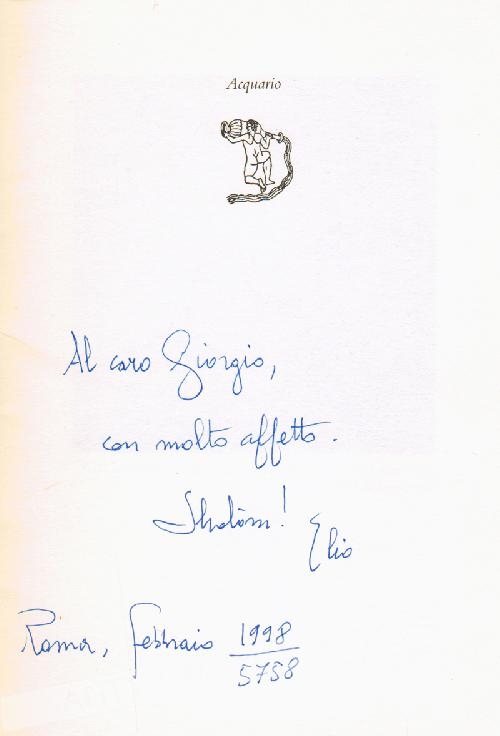 Acquario
Al caro Giorgio,
con molto affetto.
Shalòm!
Elio
Roma, febbraio 1998
5758